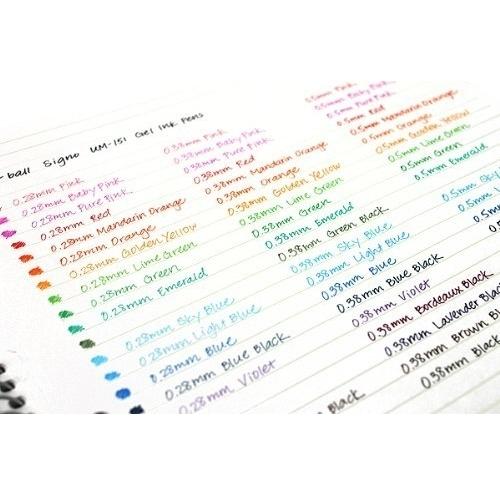 ball Signo UM-151 Gel Ink Pens
0.28mm Pink
0.28mm Baby Pink
0.28mm Pure Pink
0.28mm Red
0.28mm Mandarin Orange
0.28mm Orange
0.28mm Golden Yellow
0.28mm Lime Green
0.28mm Green
0.28mm Emerald
0.28mm Sky Blue
0.28mm Light Blue
0.28mm Blue
0.28mm Blue Black
0.28mm Violet
0.38mm Pink
0.38mm Baby Pink
0.38mm Pure Pink
0.38mm Red
0.38mm Mandarin Orange
0.38mm Orange
0.38mm Golden Yellow
0.38mm Lime Green
0.38mm Green
0.38mm Emerald
0.38mm Green Black
0.38mm Sky Blue
0.38mm Light Blue
0.38mm Blue
0.38mm Blue Black
0.38mm Violet
0.38mm Bordeaux Black
0.38mm Lavender Black
0.38mm Brown B
0.38mm Black
Black
0.5mm Pink
0.5mm Baby Pink
0.5mm Pure Pink
0.5mm Red
0.5mm Mandarin Orange
0.5mm Orange
0.5mm Golden Yellow
0.5mm Lime Green
0.5mm Green
0.5mm Emerald
0.5mm Sky
0.5mm
0.5mm